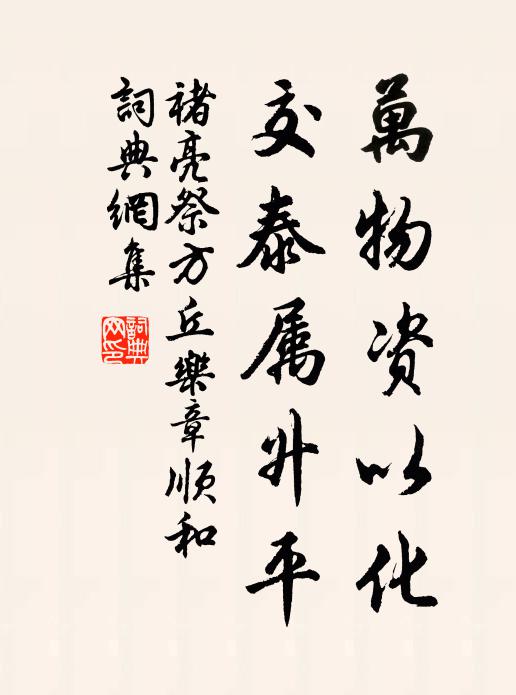 萬物资以化
交泰属升平
褚亮祭方丘樂章順和
詞典網集
詞典網印